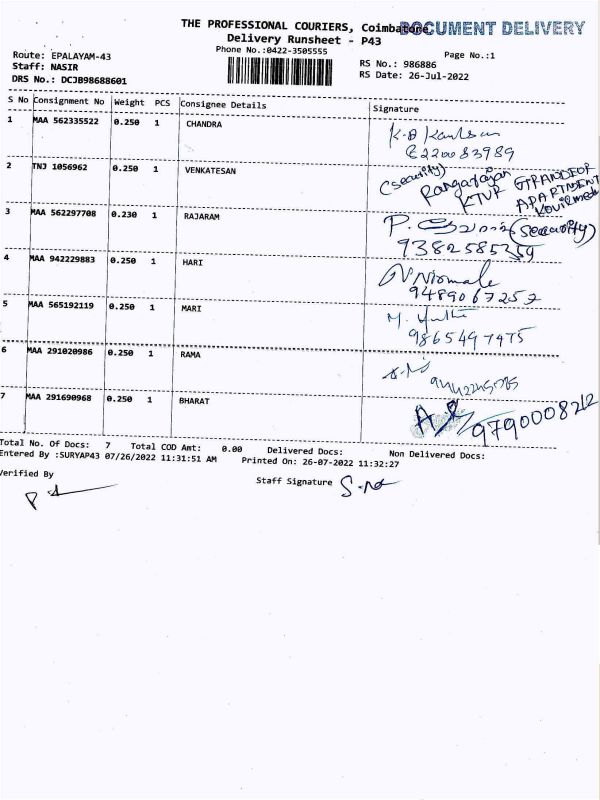 THE PROFESSIONAL COURIERS, Coimbatore
DOCUMENT DELIVERY
Delivery Runsheet - P43
Phone No.:0422-3505555
Page No.:1
Route: EPALAYAM-43
Staff: NASIR
DRS No.: DCJB98688601
RS No.: 986886
RS Date: 26-Jul-2022
S No Consignment No Weight PCS Consignee Details Signature
1 MAA 562335522 0.250 1 CHANDRA
8220083989
2 TNJ 1056962 0.250 1 VENKATESAN
(Security)
Rangarajan
KTVR GRANDEOR
APARTMENT
3 MAA 562297708 0.230 1 RAJARAM
(Seccurity)
9382585359
4 MAA 942229883 0.250 1 HARI
N Nirmale
9489067257
5 MAA 565192119 0.250 1 MARI
9865497475
6 MAA 291020986 0.250 1 RAMA
7 MAA 291690968 0.250 1 BHARAT
9790008212
Total No. Of Docs: 7 Total COD Amt: 0.00 Delivered Docs: Non Delivered Docs:
Entered By :SURYAP43 07/26/2022 11:31:51 AM Printed On: 26-07-2022 11:32:27
Verified By
Staff Signature